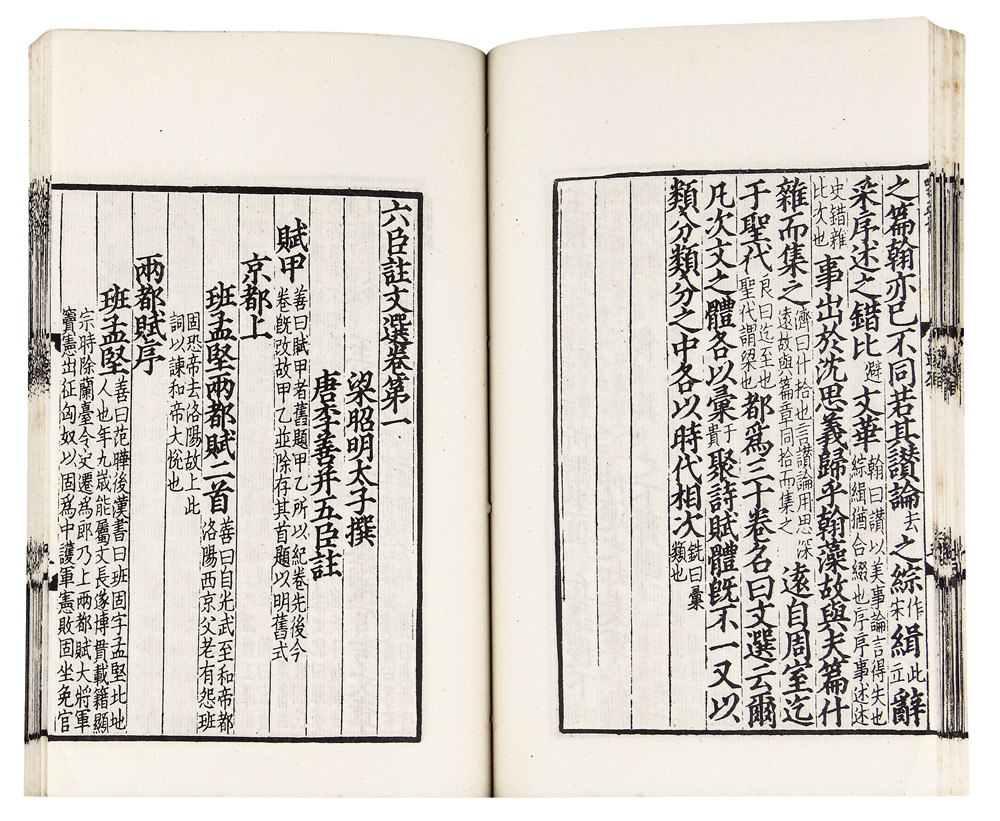 之篇翰亦已不同若其讚論去之綜作宋緝此立辭
采序述之錯比避文華翰曰讚以美事論言得失也綜緝猶合綴也序序事述述
史錯雜比次也事出於沈思義歸乎翰藻故與夫篇什
雜而集之濟曰什拾也言讚論用思深遠故與篇章同拾而集之遠自周室迄
于聖代良曰迄至也聖代謂梁也都爲三十卷名曰文選云爾
凡次文之體各以彙于貴聚詩賦體旣不一又以
類分類分之中各以時代相次銑曰彙類也
六臣註文選卷第一
梁昭明太子撰
唐李善并五臣註
賦甲善曰賦甲者舊題甲乙所以紀卷先後今卷旣改故甲乙並除存其首題以明舊式
京都上
班孟堅兩都賦二首善曰自光武至和帝都洛陽西京父老有怨班
固恐帝去洛陽故上此詞以諫和帝大悅也
兩都賦序
班孟堅善曰范曄後漢書曰班固字孟堅北地人也年九歲能屬文長遂博貫載籍顯
宗時除蘭臺令史遷爲郎乃上兩都賦大將軍竇憲出征匈奴以固爲中護軍憲敗固坐免官